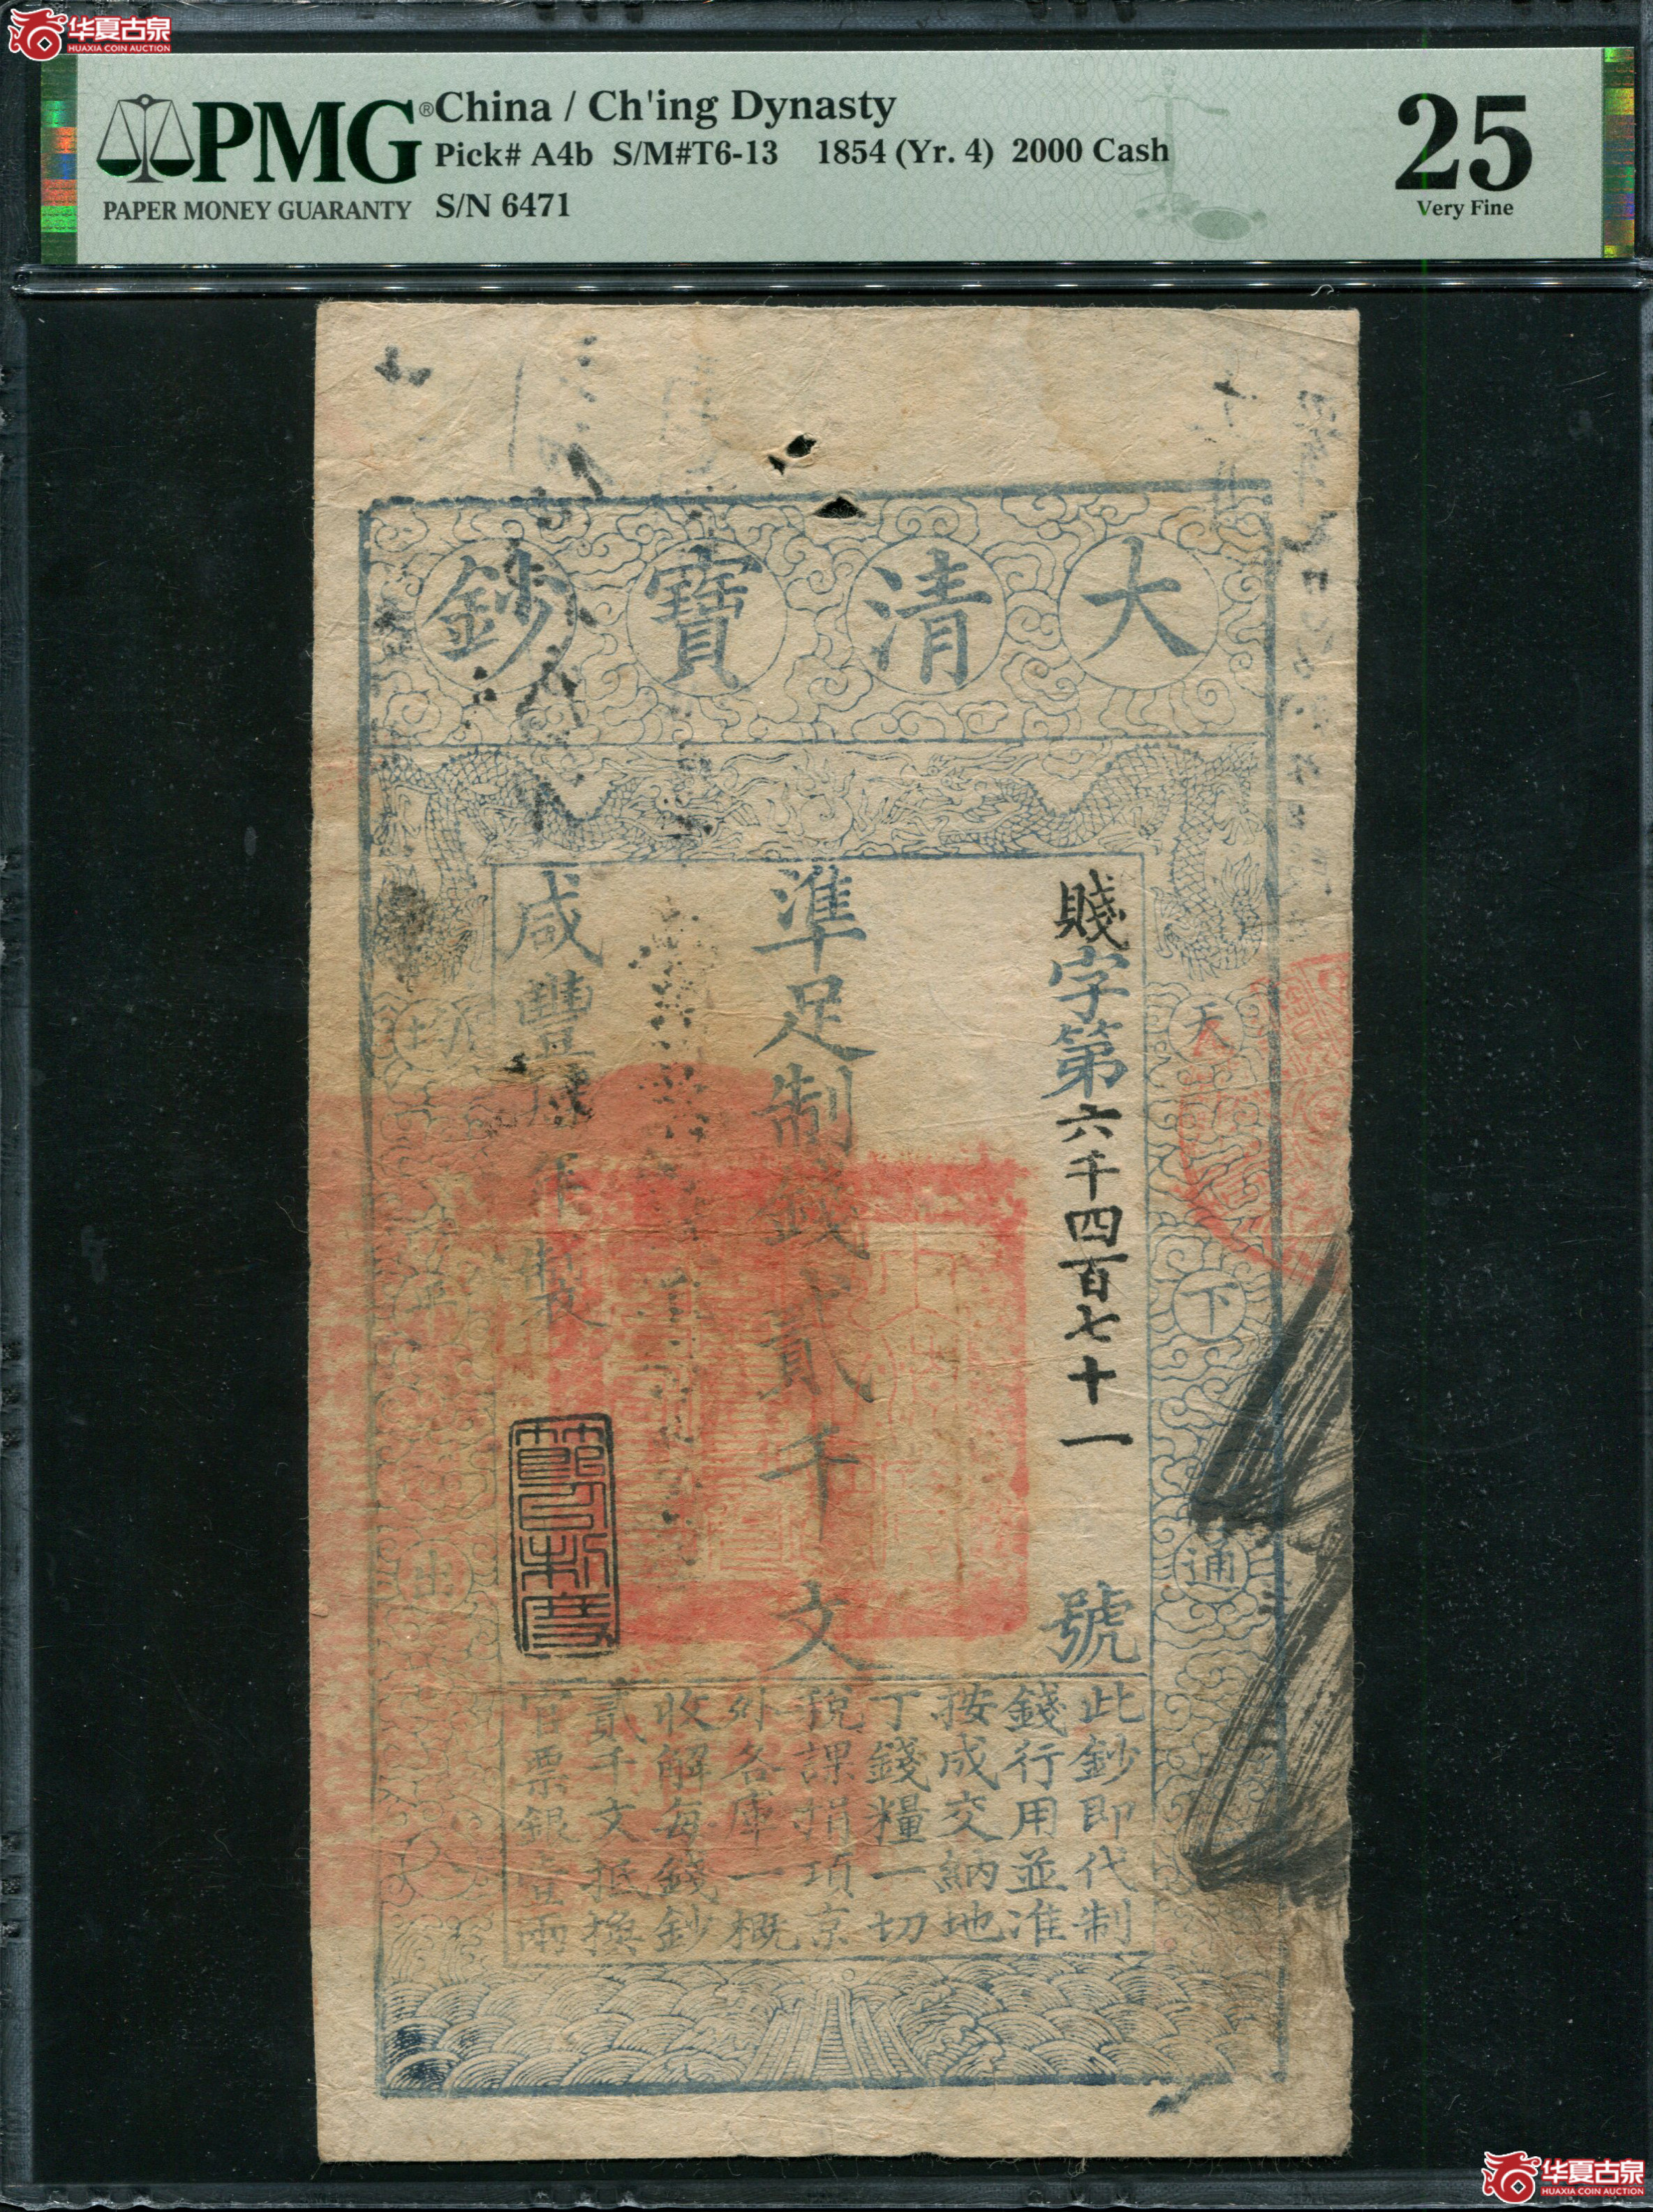 华夏古泉
HUAXIA COIN AUCTION
PMG®
PAPER MONEY GUARANTY
China / Ch'ing Dynasty
Pick# A4b S/M#T6-13 1854 (Yr. 4) 2000 Cash
S/N 6471
25
Very Fine
大清寶鈔
天下通
均平出入
賤字第六千四百七十一號
準足制錢貳千文
咸豐年製
此鈔即代制
錢行用並准
按成交納地
丁錢糧一切
稅課捐項京
外各庫一概
收解每錢鈔
貳千文抵換
官票銀壹兩
华夏古泉
HUAXIA COIN AUCTION